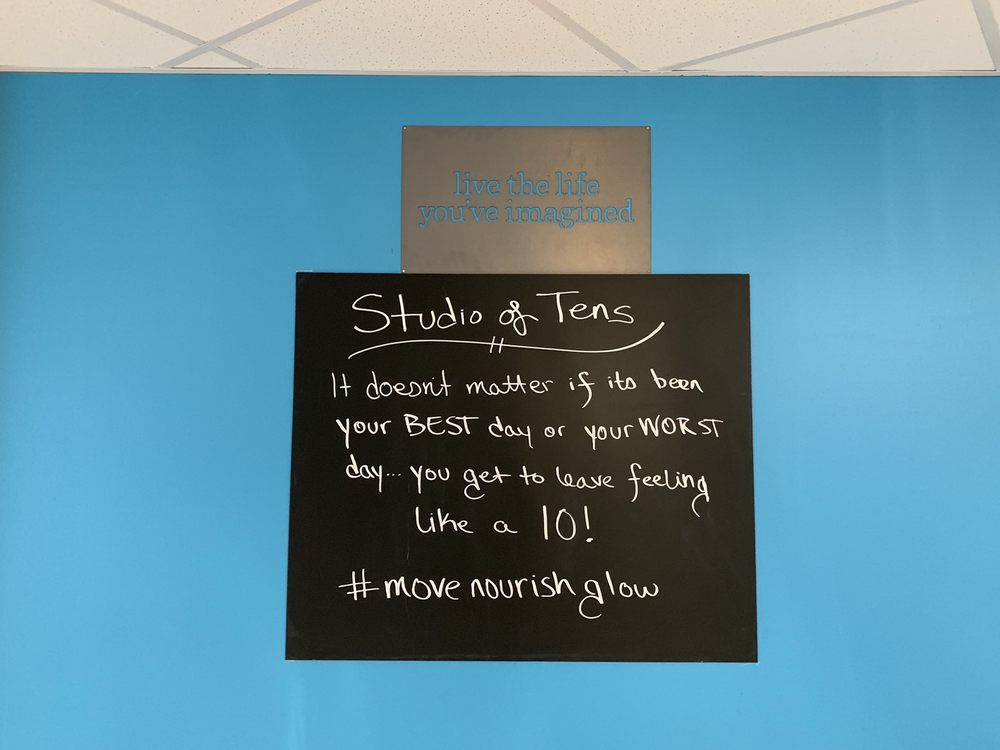 live the life
you've imagined
Studio of Tens
It doesn't matter if its been
your BEST day or your WORST
day... you get to leave feeling
like a 10!
#movenourishglow